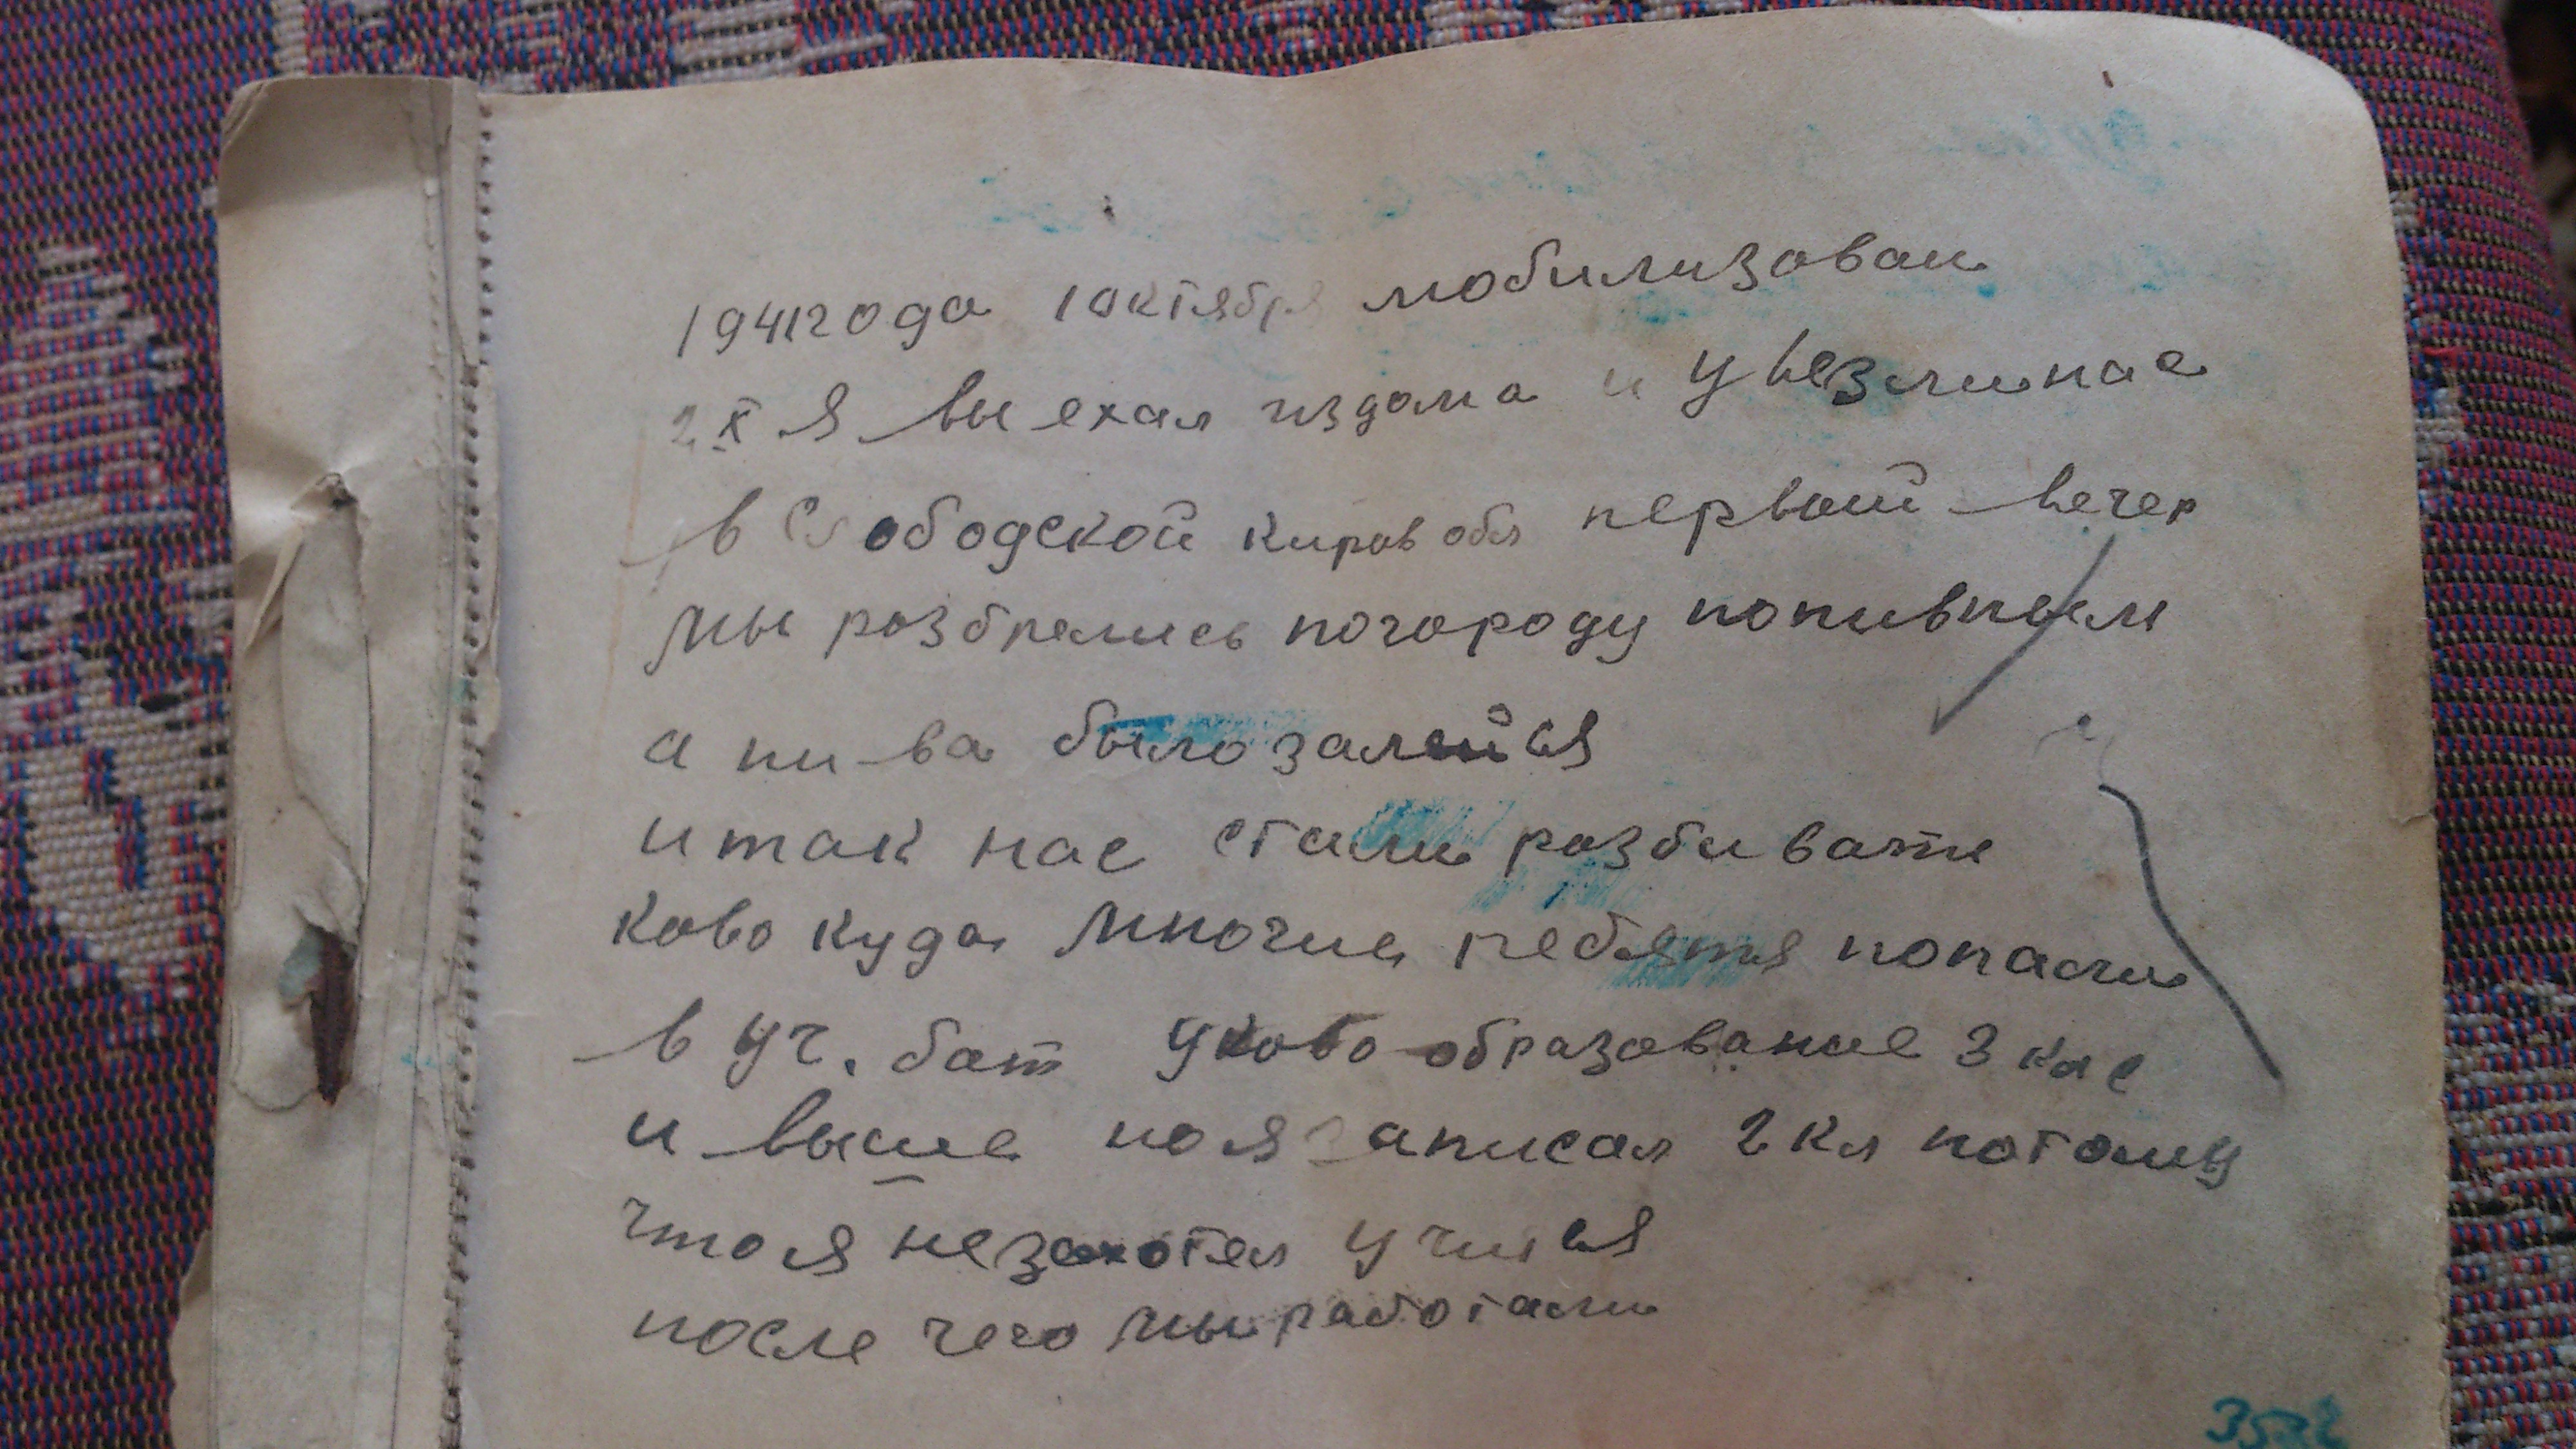 1941года 1 октября мобилизован
2 X я выехал издома и увезлинас
в Слободской киров обл первый вечер
мы розбрелись погороду попивным
а пива было залейся
и так нас стали розбивать
ково куда многие ребята попали
в уч. бат уково образование 3 кас
и выше но я записал 2 кл потому
что я незахотел учися
после чего мы работали